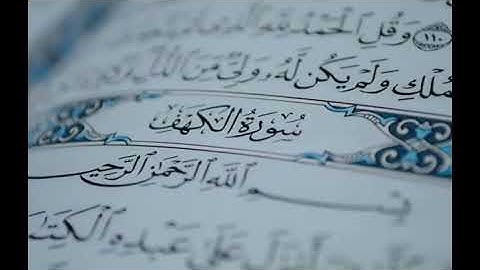 ١١٠ وَقُلِ ٱلْحَمْدُ لِلَّهِ
مُلْكِ وَلَمْ يَكُن لَّهُۥ وَلِىٌّ مِّنَ ٱلذُّلِّ
سُورَةُ الكَهْفِ
بِسْمِ ٱللَّهِ ٱلرَّحْمَٰنِ ٱلرَّحِيمِ
أَنزَلَ عَلَىٰ عَبْدِهِ ٱلْكِتَٰبَ